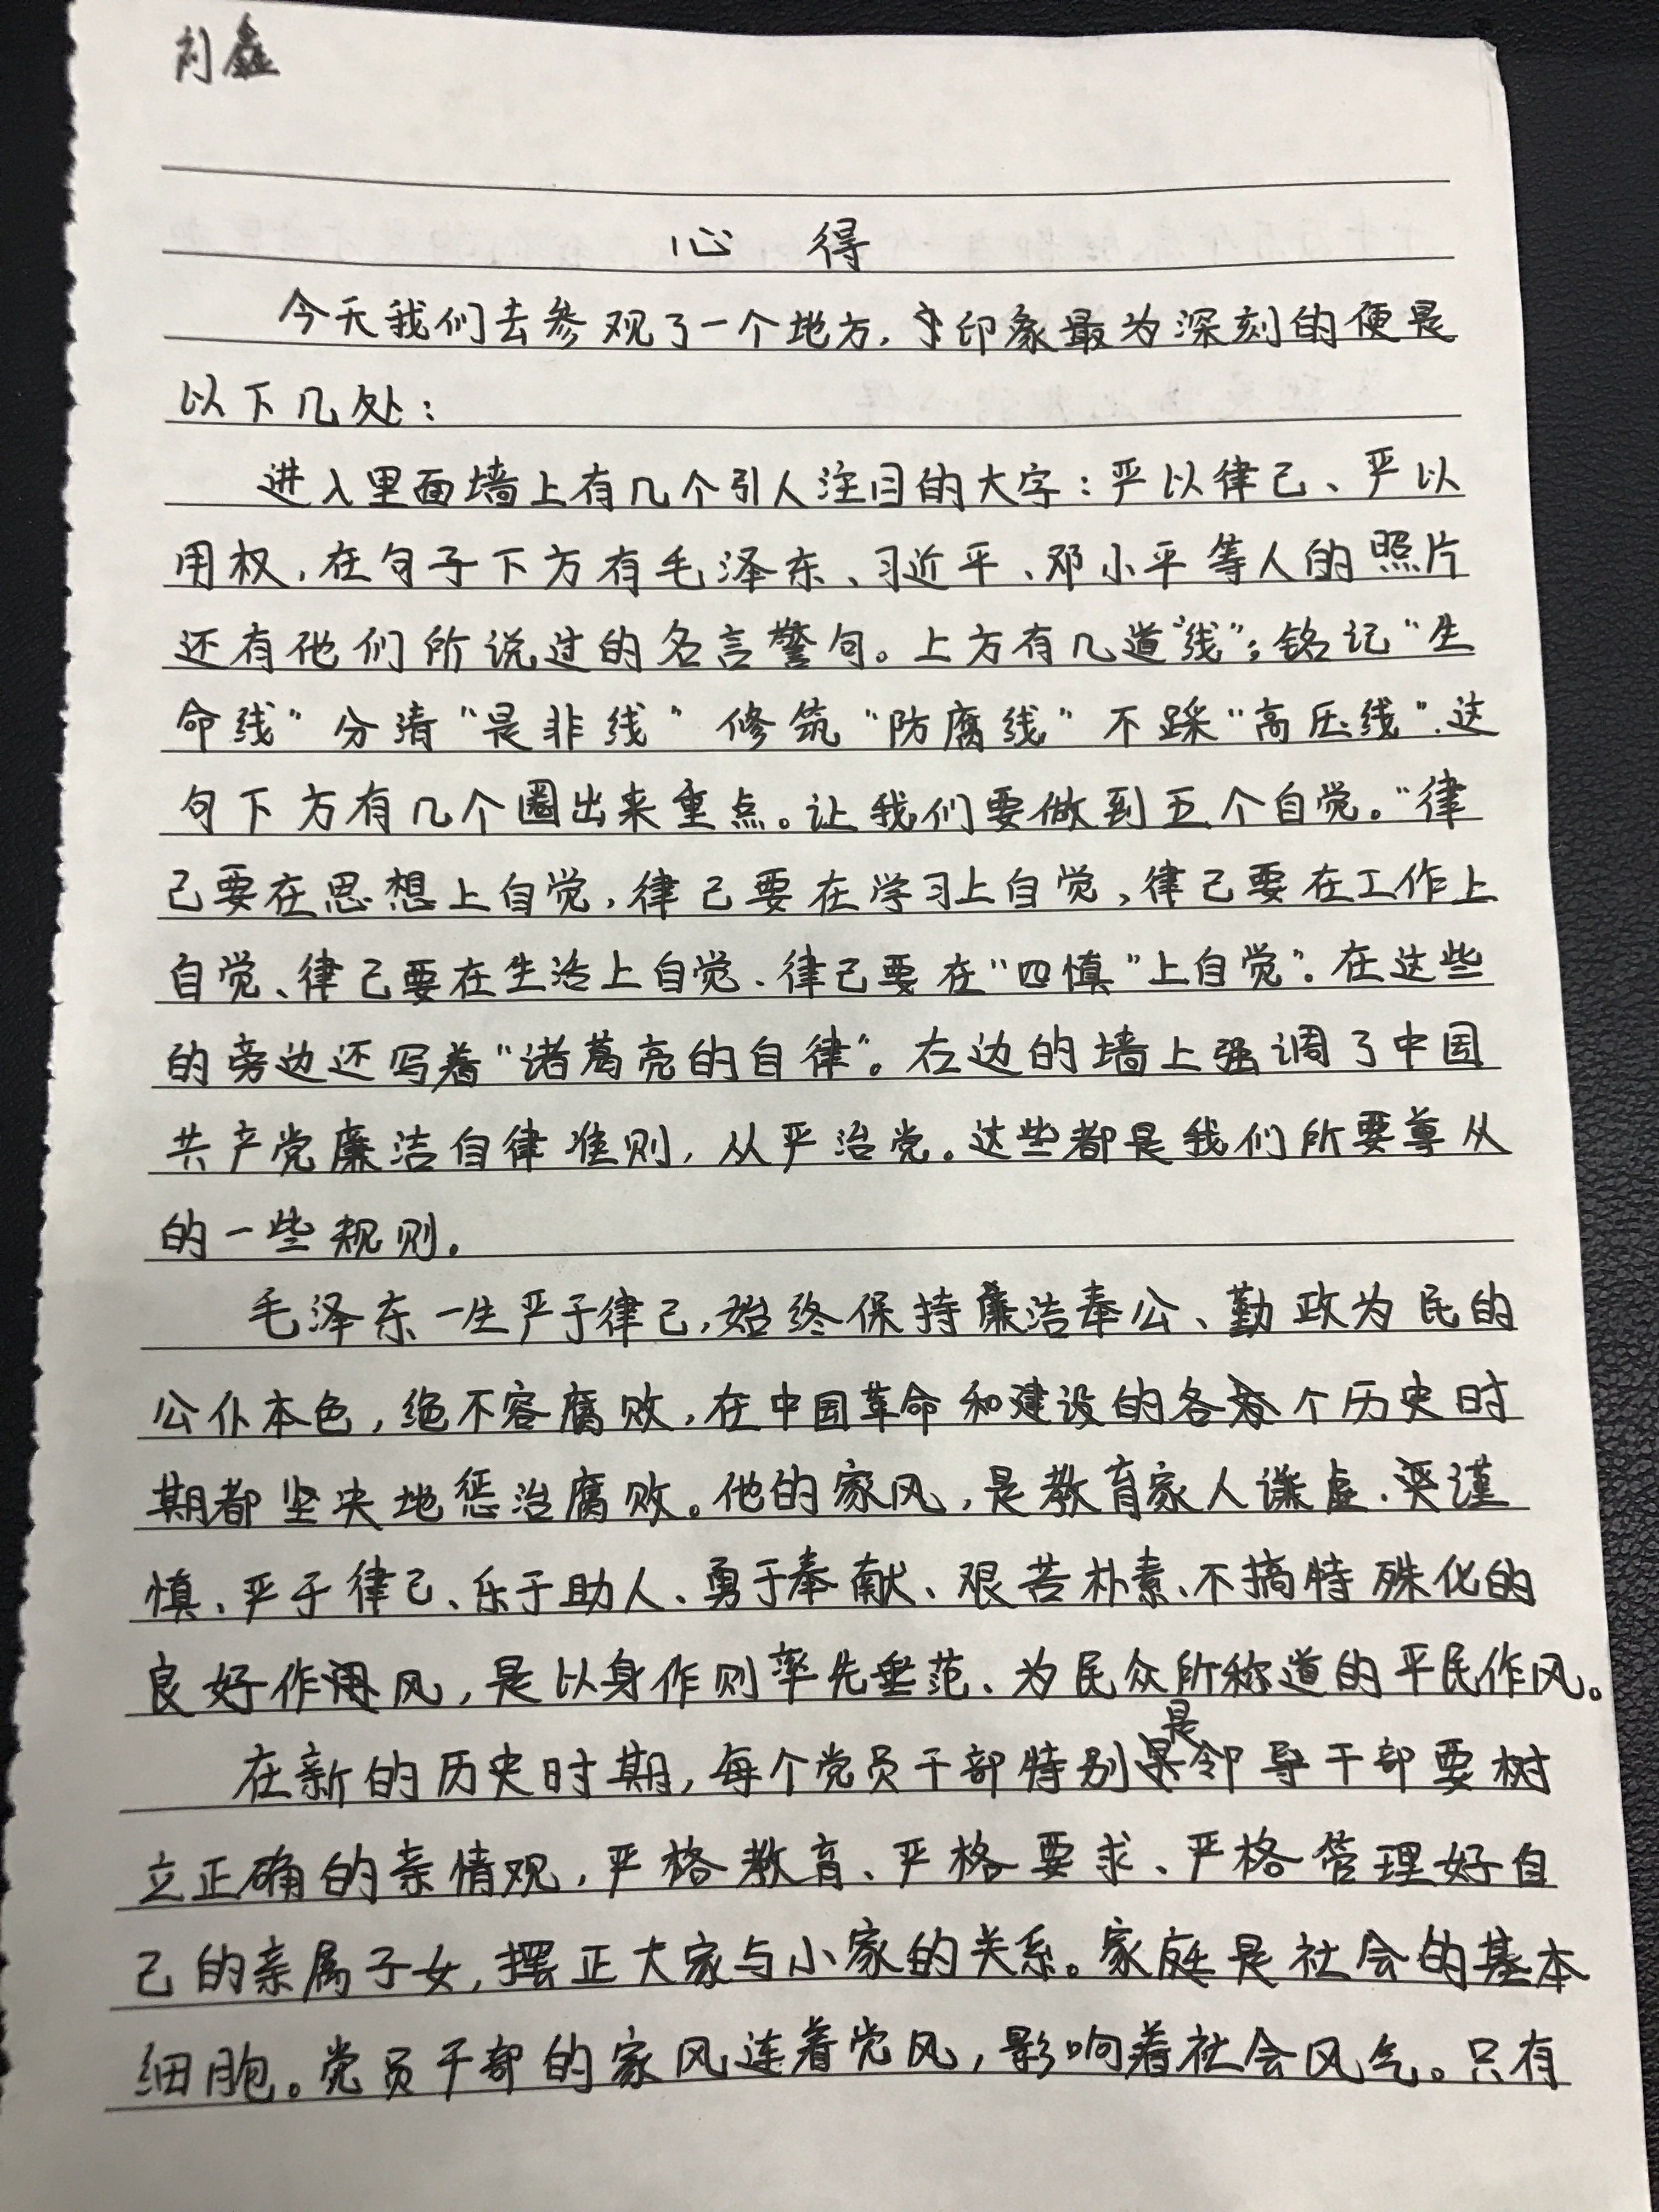 刘鑫
心得
今天我们去参观了一个地方,印象最为深刻的便是
以下几处:
进入里面墙上有几个引人注目的大字:严以律己、严以
用权,在句子下方有毛泽东、习近平、邓小平等人的照片
还有他们所说过的名言警句。上方有几道“线”;铭记“生
命线”分清“是非线”修筑“防腐线”不踩“高压线”.这
句下方有几个圈出来重点。让我们要做到五个自觉。“律
己要在思想上自觉,律己要在学习上自觉,律己要在工作上
自觉、律己要在生活上自觉、律己要在“四慎”上自觉”.在这些
的旁边还写着“诸葛亮的自律”。右边的墙上强调了中国
共产党廉洁自律准则,从严治党。这些都是我们所要尊从
的一些规则.
毛泽东一生严于律己,始终保持廉洁奉公、勤政为民的
公仆本色,绝不容腐败,在中国革命和建设的各个历史时
期都坚决地惩治腐败。他的家风,是教育家人谦虚、谨
慎、严于律己、乐于助人、勇于奉献、艰苦朴素、不搞特殊化的
良好作风,是以身作则率先垂范、为民众所称道的平民作风。
在新的历史时期,每个党员干部特别是领导干部要树
立正确的亲情观,严格教育、严格要求、严格管理好自
己的亲属子女,摆正大家与小家的关系。家庭是社会的基本
细胞。党员干部的家风连着党风,影响着社会风气。只有